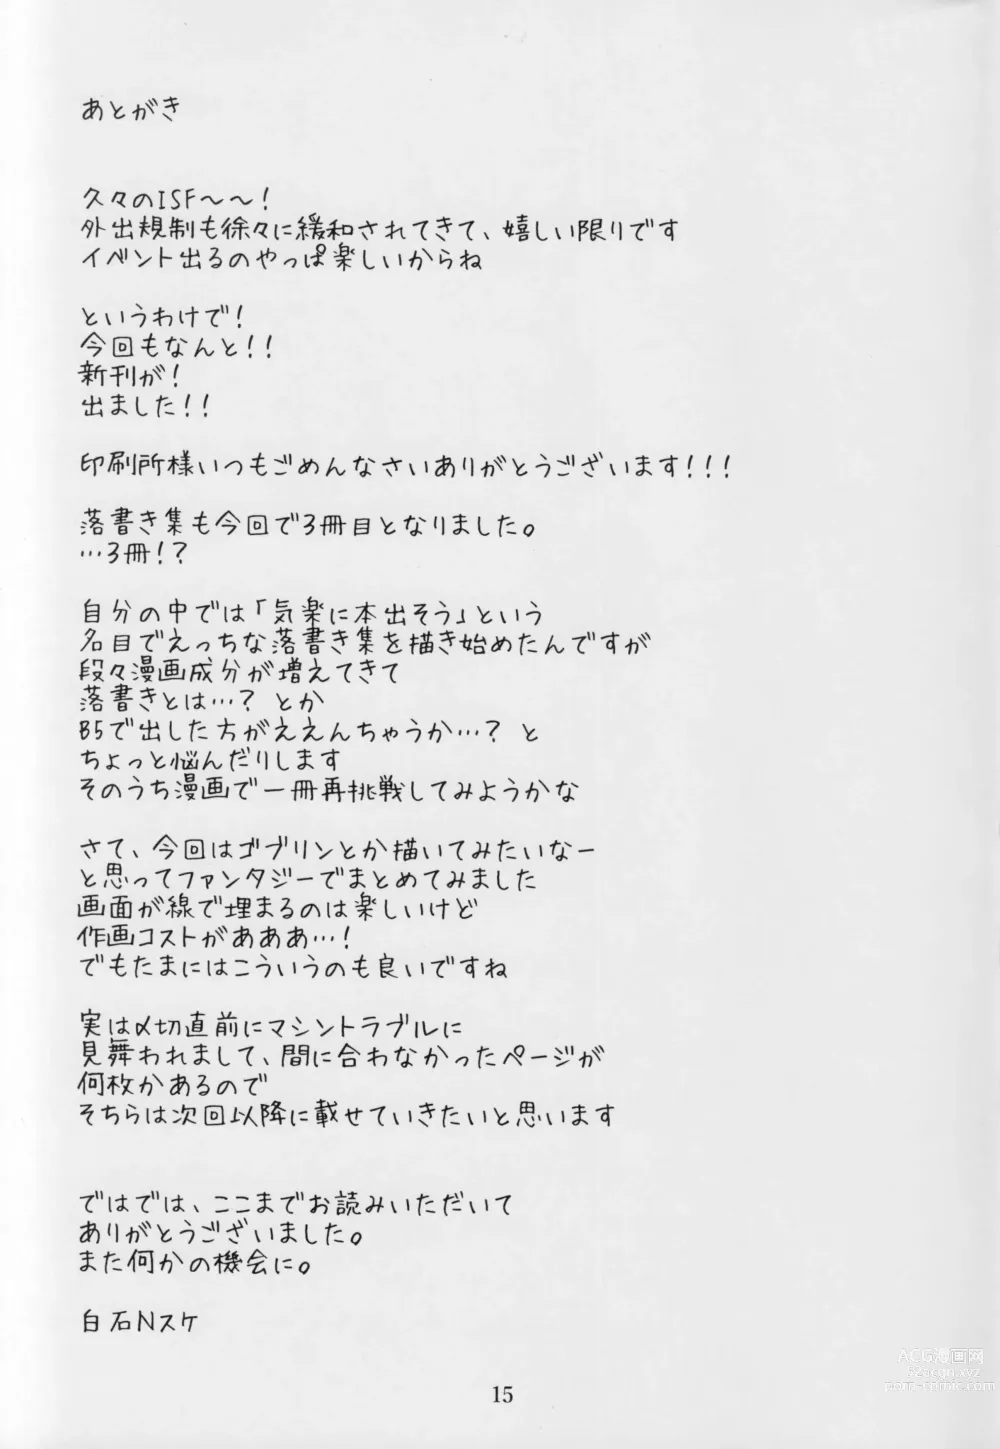 あとがき
久々のISF〜〜!
外出規制も徐々に緩和されてきて、嬉しい限りです
イベント出るのやっぱ楽しいからね
というわけで!
今回もなんと!!
新刊が!
出ました!!
印刷所様いつもごめんなさいありがとうございます!!!
落書き集も今回で3冊目となりました。
…3冊!?
自分の中では「気楽に本出そう」という
名目でえっちな落書き集を描き始めたんですが
段々漫画成分が増えてきて
落書きとは…? とか
B5で出した方がええんちゃうか…? と
ちょっと悩んだりします
そのうち漫画で一冊再挑戦してみようかな
さて、今回はゴブリンとか描いてみたいなー
と思ってファンタジーでまとめてみました
画面が線で埋まるのは楽しいけど
作画コストがあああ…!
でもたまにはこういうのも良いですね
実は〆切直前にマシントラブルに
見舞われまして、間に合わなかったページが
何枚かあるので
そちらは次回以降に載せていきたいと思います
ではでは、ここまでお読みいただいて
ありがとうございました。
また何かの機会に。
白石Nスケ
15
ACG漫画网
52acgn.xyz
porn-comic.com